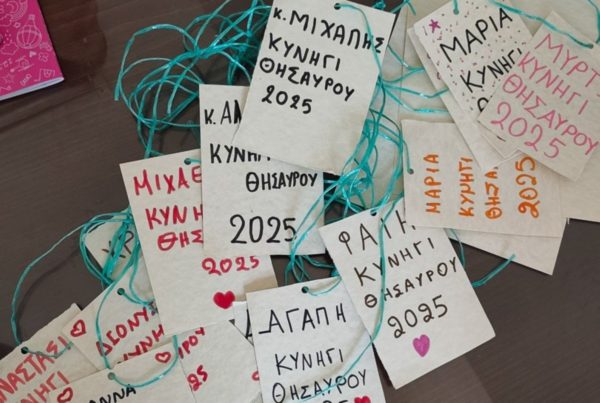 Κ. ΜΙΧΑΛΗΣ
ΚΥΝΗΓΙ
ΘΗΣΑΥΡΟΥ
2025
ΜΑΡΙΑ
ΚΥΝΗΓΙ
ΜΥΡΤ
ΚΥΝΗΓΙ
ΘΗΣΑΥΡΟΥ
2025
Κ. ΑΝ
ΚΥΝΗΓΙ
ΘΗΣΑΥΡΟΥ
2025
ΜΑΡΙΑ
ΚΥΝΗΓΙ
ΘΗΣΑ
2025
ΜΙΧΑΕ
ΚΥΝΗΓ
ΘΗΣΑΥ
2025
ΦΑΙΗ
ΚΥΝΗΓΙ
ΘΗΣΑΥΡΟΥ
2025
ΑΓΑΠΗ
ΚΥΝΗΓΙ
ΘΗΣΑΥΡΟΥ
2025
ΔΙΟΝΥ
ΚΥΝΗΓΙ
ΝΑΣΤΑΣΙ
ΚΥΝΗΓΙ
ΑΝΝΑ